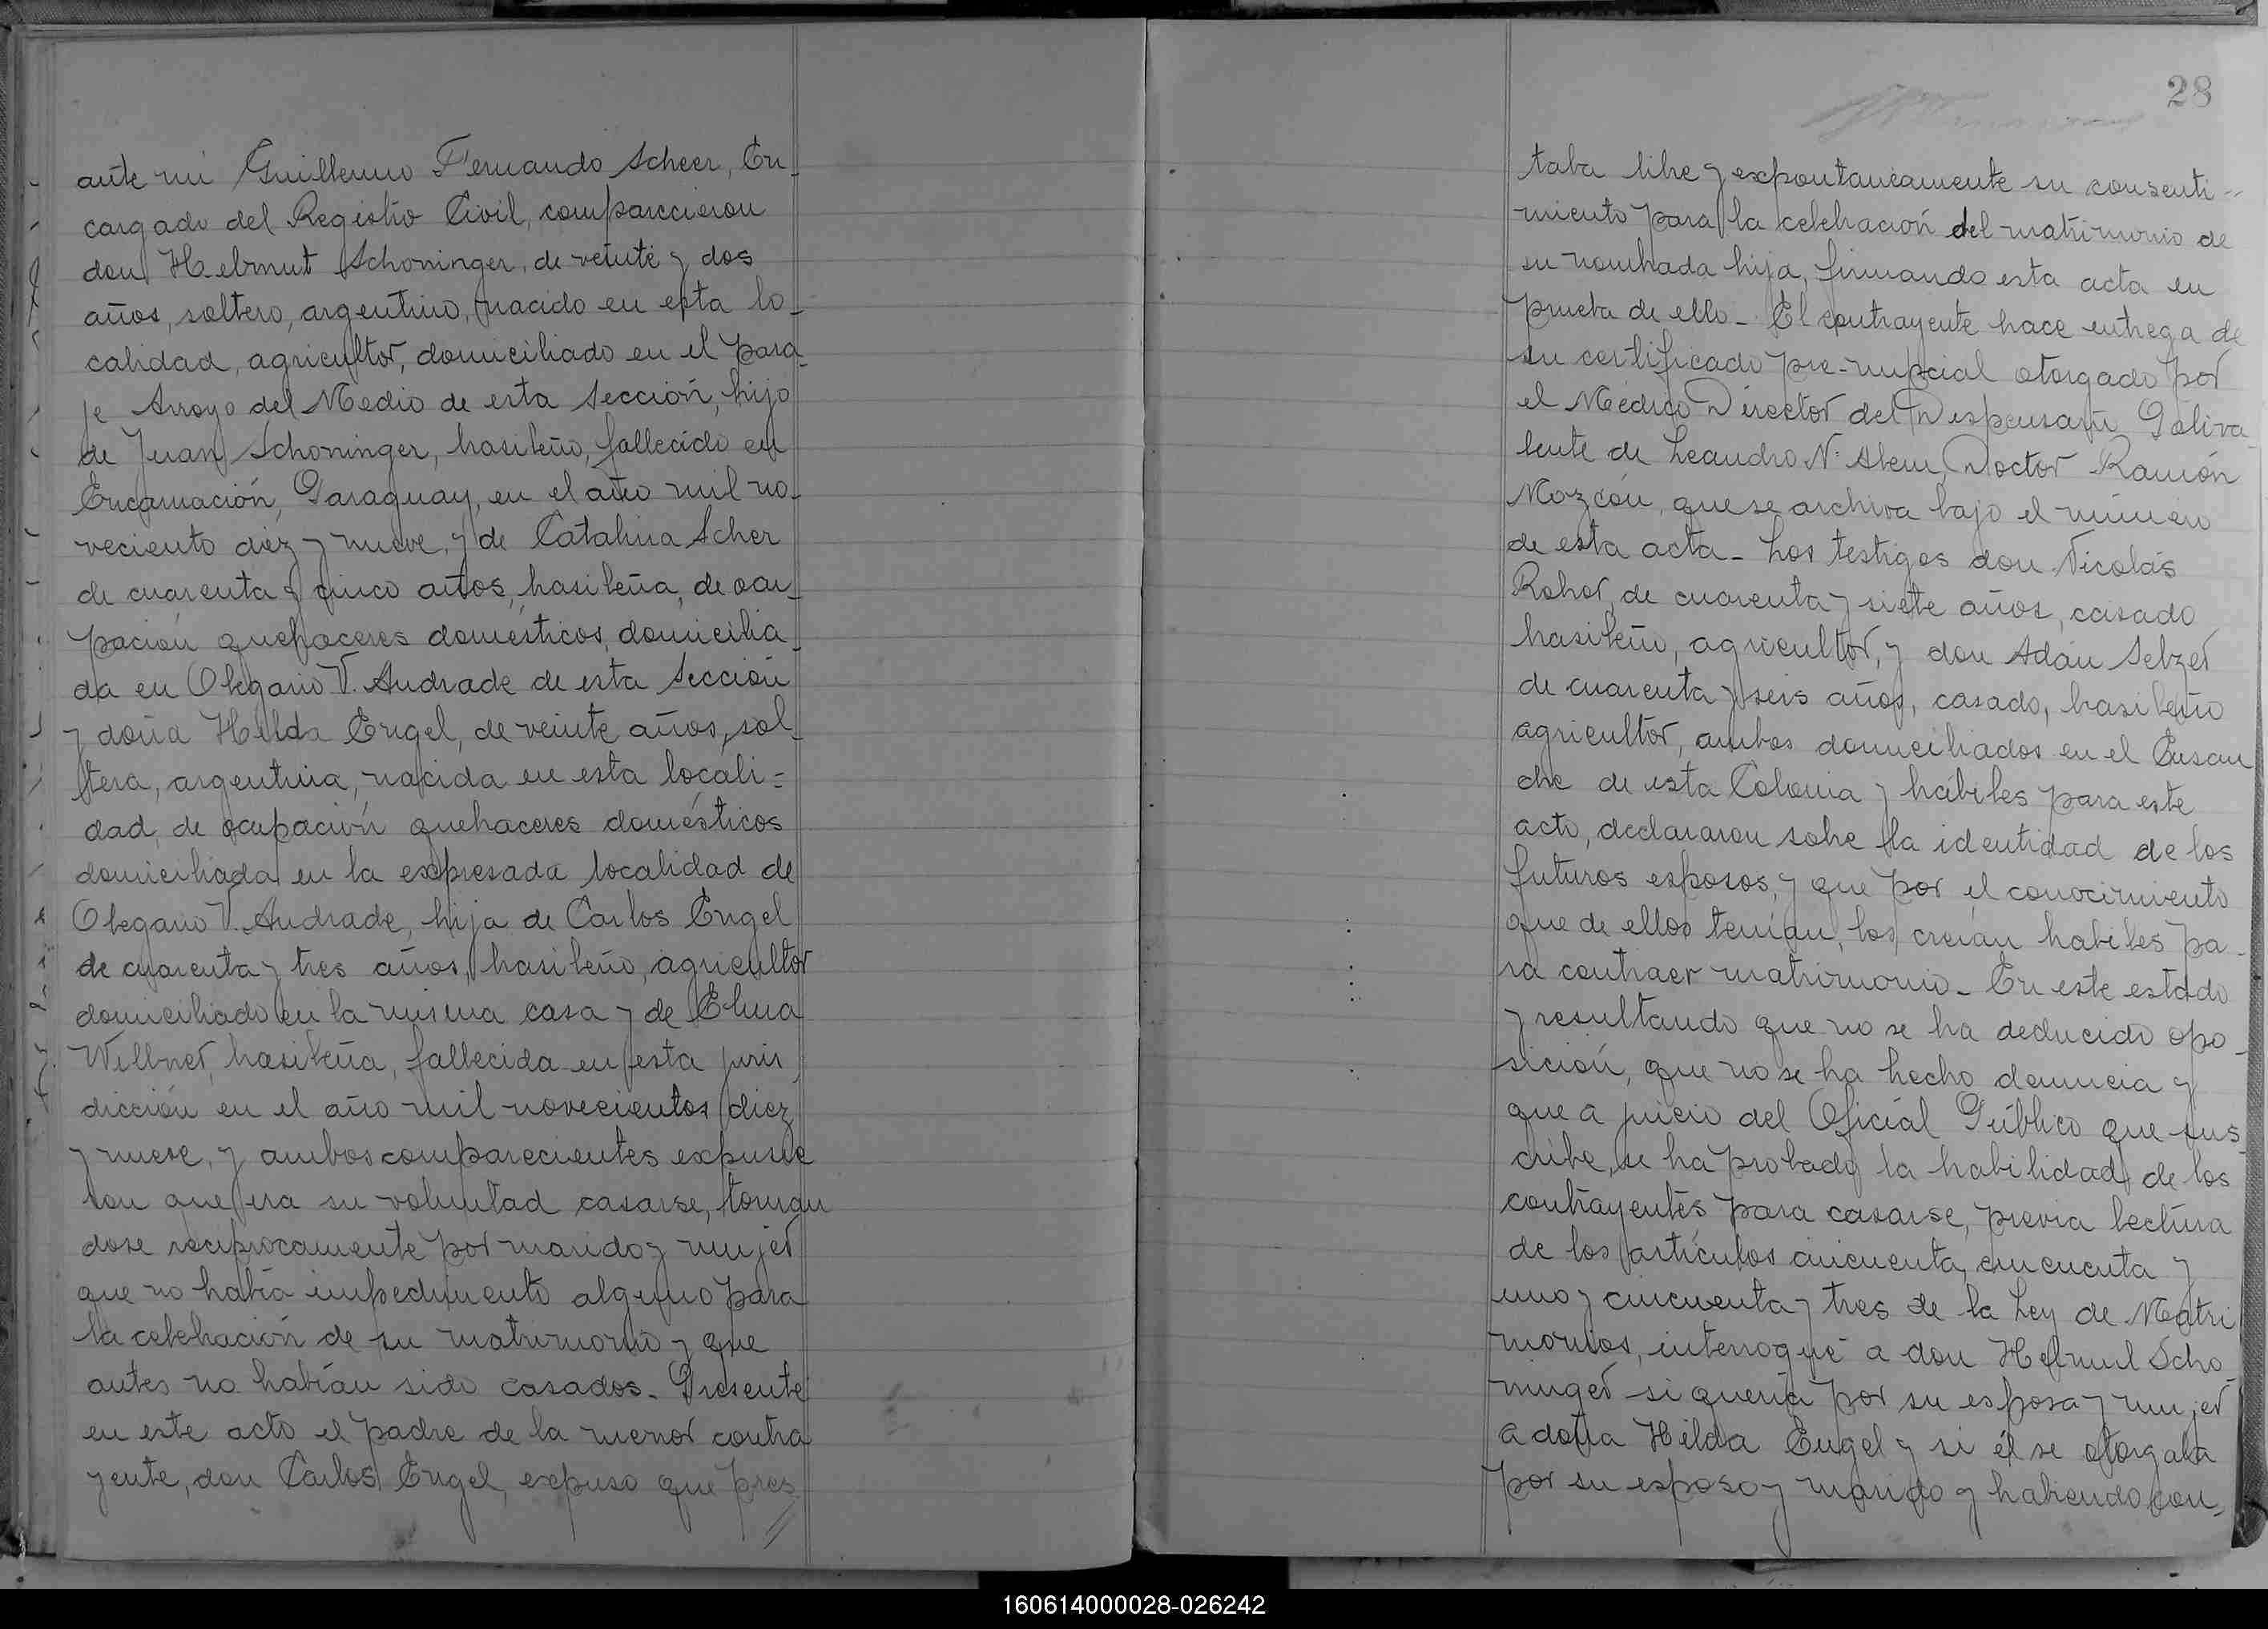 ante mi Guillermo Fernando Scheer, En-
cargado del Registro Civil, comparecieron
don Helmut Schoninger, de veinte y dos
años, soltero, argentino, nacido en esta lo-
calidad, agricultor, domiciliado en el para-
je Arroyo del Medio de esta Sección, hijo
de Juan Schoninger, brasileño, fallecido en
Encarnación, Paraguay, en el año mil no-
veciento diez y nueve, y de Catalina Scher
de cuarenta y cinco años, brasileña, de ocu-
pación quehaceres domésticos, domicilia-
da en Olegario V. Andrade de esta Sección
y doña Hilda Engel, de veinte años, sol-
tera, argentina, nacida en esta locali=
dad, de ocupación quehaceres domésticos
domiciliada en la expresada localidad de
Olegario V. Andrade, hija de Carlos Engel
de cuarenta y tres años, brasileño, agricultor
domiciliado en la misma casa y de Elma
Willner, brasileña, fallecida en esta juris
dicción en el año mil novecientos diez
y nueve, y ambos comparecientes expusie
ron que era su voluntad casarse, toman
dose reciprocamente por marido y mujer
que no había impedimento alguno para
la celebración de su matrimonio y que
antes no habían sido casados. Presente
en este acto el padre de la menor contra
yente, don Carlos Engel, expuso que pres
28
taba libre y expontaneamente su consenti-
miento para la celebración del matrimonio de
su nombrada hija, firmando esta acta en
prueba de ello. El contrayente hace entrega de
su certificado pre-nupcial otorgado por
el Médico Director del Dispensario Poliva
lente de Leandro N. Alem, Doctor Ramón
Mozcón, que se archiva bajo el número
de esta acta. Los testigos don Nicolás
Rohor, de cuarenta y siete años, casado
brasileño, agricultor, y don Adán Selzer
de cuarenta y seis años, casado, brasileño
agricultor, ambos domiciliados en el Ensan
che de esta Colonia y hábiles para este
acto, declararon sobre la identidad de los
futuros esposos, y que por el conocimiento
que de ellos tenían, los creían habiles pa-
ra contraer matrimonio. En este estado
y resultando que no se ha deducido opo-
sición, que no se ha hecho denuncia y
que a juicio del Oficial Público que sus
cribe, se ha probado la habilidad de los
contrayentes para casarse, previa lectura
de los artículos cincuenta, cincuenta y
uno y cincuenta y tres de la Ley de Matri
monios, interrogué a don Helmut Scho-
ninger si quería por su esposa y mujer
a doña Hilda Engel y si él se otorgaba
por su esposo y marido y habiendo con-
160614000028-026242